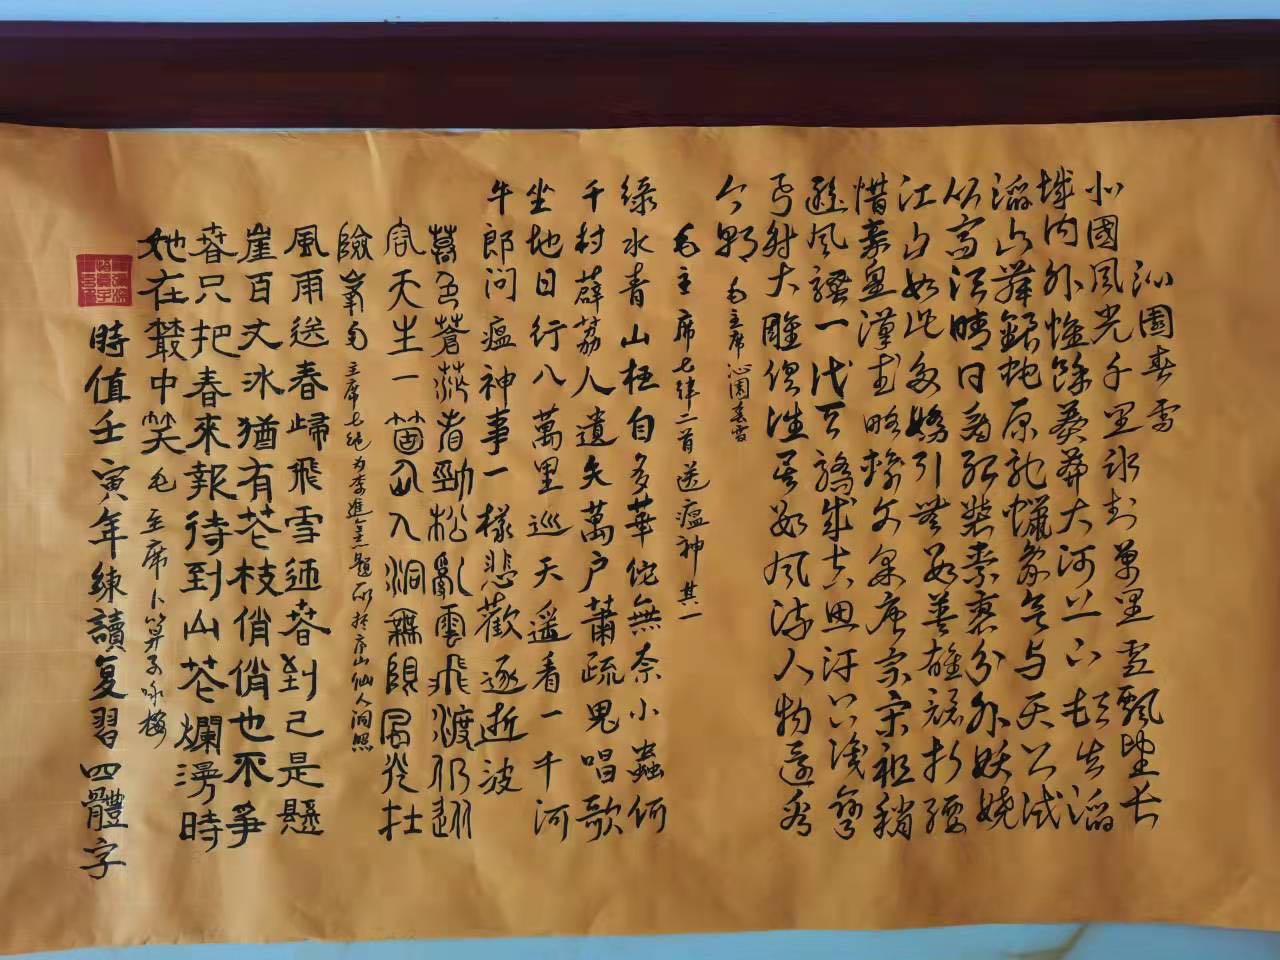 沁園春雪
北國風光千里冰封萬里雪飄望長
城内外惟餘莽莽大河上下頓失滔
滔山舞銀蛇原馳蠟象欲与天公試
比高須晴日看紅裝素裹分外妖嬈
江山如此多嬌引無數英雄競折腰
惜秦皇漢武略輸文采唐宗宋祖稍
遜風騷一代天驕成吉思汗只識彎
弓射大雕俱往矣數風流人物還看
今朝 毛主席沁園春雪
毛主席七律二首送瘟神其一
綠水青山枉自多華佗無奈小蟲何
千村薜荔人遺矢萬户蕭疏鬼唱歌
坐地日行八萬里巡天遥看一千河
牛郎问瘟神事一樣悲歡逐逝波
暮色蒼茫看勁松亂雲飛渡仍從
容天生一箇仙人洞無限風光在
險峯 主席七绝为李進題所摄庐山仙人洞照
風雨送春歸飛雪迎春到已是懸
崖百丈冰猶有花枝俏俏也不爭
春只把春來報待到山花爛漫時
她在叢中笑 毛主席卜算子咏梅
時值壬寅年練讀复習四體字